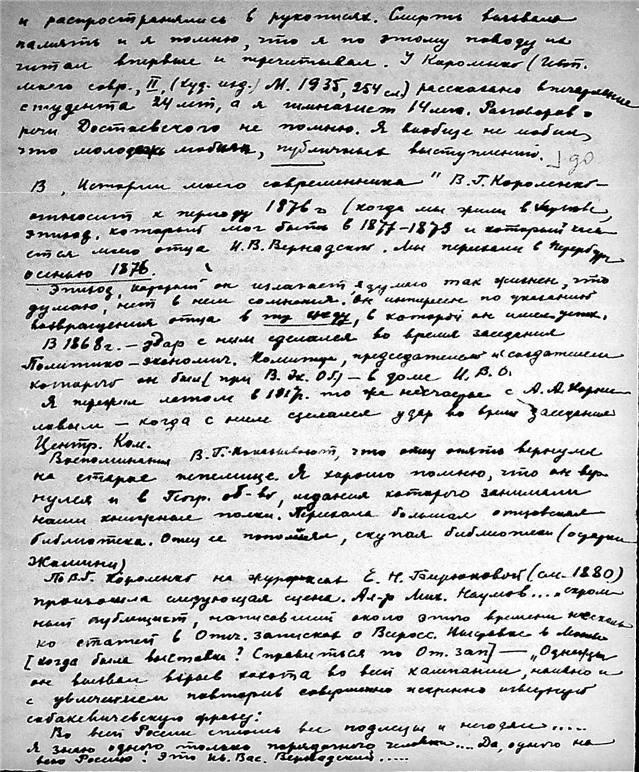 и распространялись в рукописях. Смерть вызвала
память и я помню, что я по этому поводу их
читал впервые и перечитывал. У Короленко (Ист.
моего совр., II, (худ. изд.) М. 1935, 254 сл.) рассказано впечатление
студента 24 лет, а я гимназист 14 лет. Разговоров о
речи Достоевского не помню. Я вообще не любил,
что молодежь любила, публичных выступлений.
В „Истории моего современника" В. Г. Короленко
относит к периоду 1876 г (когда мы жили в Харькове,
эпизод, который мог быть в 1877-1873 и который
ся моего отца И. В. Вернадского. Мы переехали в Петербург
осенью 1876.
Эпизод, который он излагает, я думаю так жизнен, что
думаю, нет в нем сомнения. Он интересен по указанию
возвращения отца в ту среду, в которой он
В 1868 г. – удар с ним сделался во время заседания
Политико-экономич. Комитета, председателем и создателем
которого он был (при В. Эк. Об) – в доме И. В. О.
Я пережил летом в 1917 г. то же несчастье с А. А. Корни
ловым – когда с ним сделался удар во время заседания
Центр. Ком.
Воспоминания В. Г. показывают, что отец опять вернулся
на старое пепелище. Я хорошо помню, что он вер-
нулся и в Геогр. об-во, издания которого занимали
наши книжные полки. Пропала большая отцовская
библиотека. Отец ее пополнял, скупая библиотеки (

По В. Г. Короленко на журфиксах Е. Н. Бирюковой (см. 1880)
произошла следующая сцена. Ал-р Мих. Наумов.... „скром
ный публицист, написавший около этого времени несколь
ко статей в Отеч. записках о Всеросс. Выставке в Москве
[когда была выставка? Справиться по От. зап] – „Однажды
он вызвал взрыв хохота во всей кампании, наивно и
с увлечением повторив совершенно искренно известную
собакевичевскую фразу:
Во всей России сплошь все подлецы и негодяи.....
Я знаю одного только порядочного человека.... Да, одного на
всю Россию! Это Ив. Вас. Вернадский.....